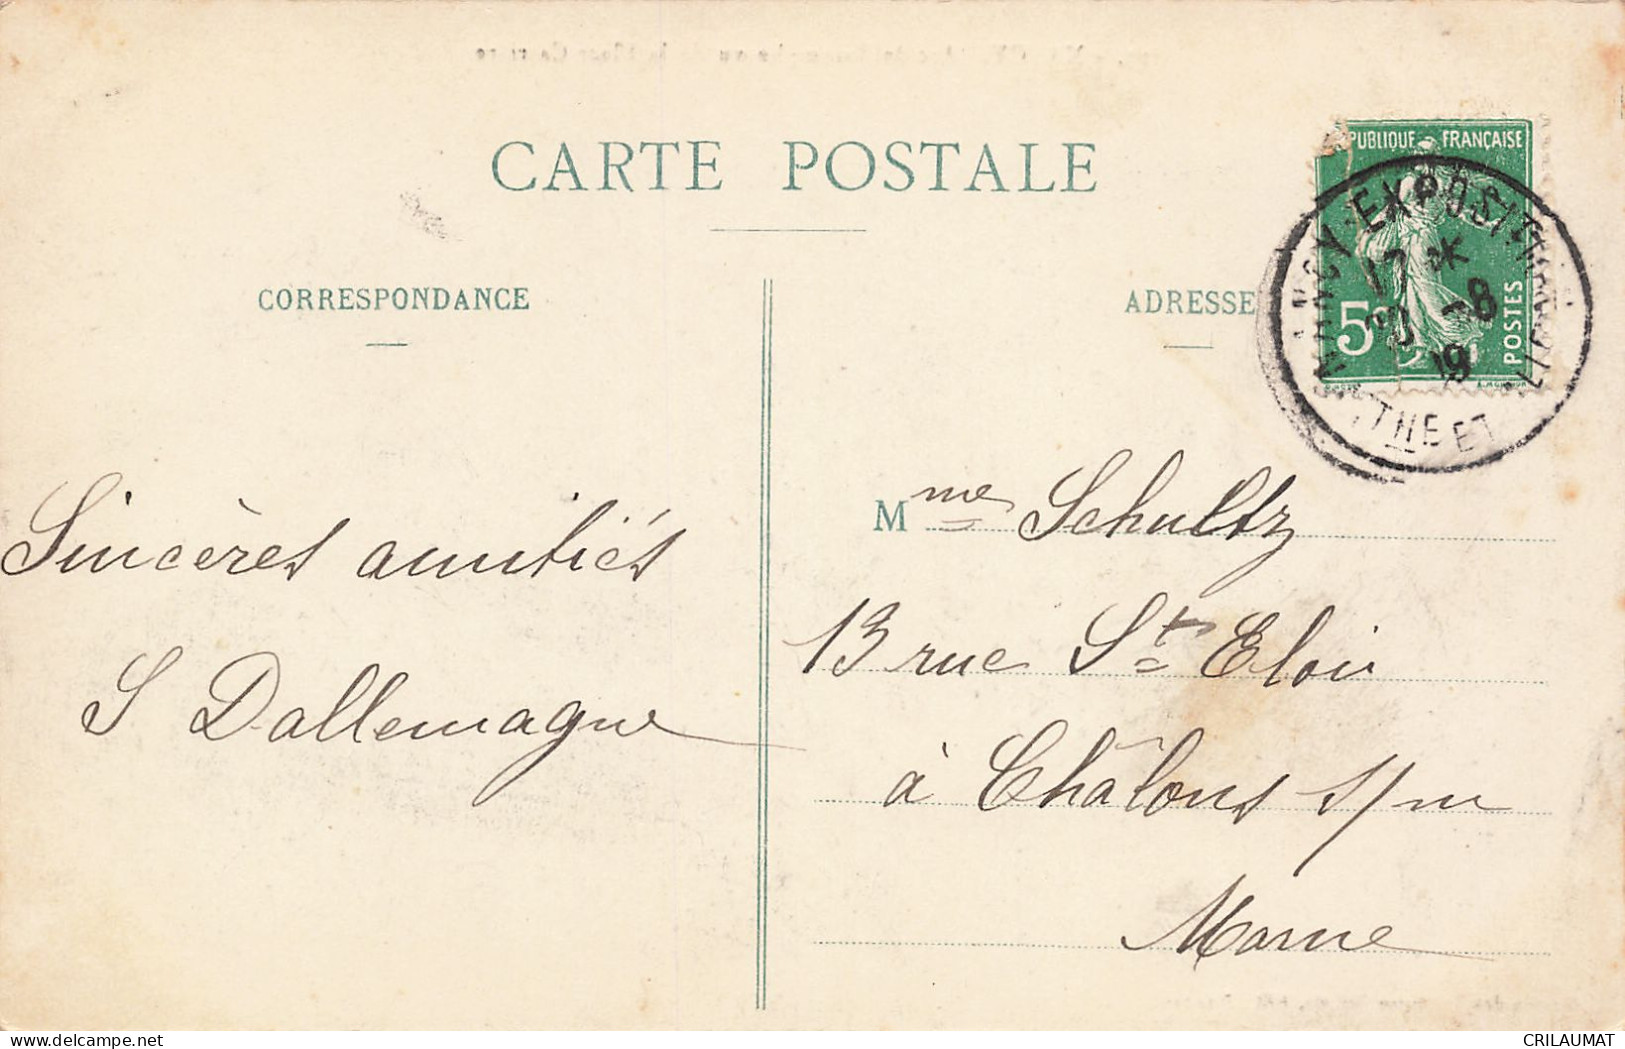 CARTE POSTALE
CORRESPONDANCE
ADRESSE
RÉPUBLIQUE FRANÇAISE
5c
POSTES
NANCY-EXPOSITION
17
20 -8
THE ET
Sincères amitiés
S Dallemagne
Mme Schultz
13 rue St Eloi
à Châlons s/m
Marne
delcampe.net
CRILAUMAT